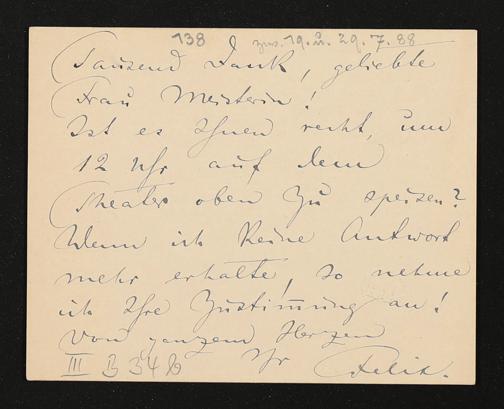 138 zw. 19. u. 29. 7. 88
Tausend Dank, geliebte
Frau Meisterin!
Ist es Ihnen recht, um
12 Uhr auf dem
Theater oben zu speisen?
Wenn ich keine Antwort
mehr erhalte, so nehme
ich Ihre Zustim̅ung an!
Von ganzem Herzen
Ihr Felix.
III B 34 b